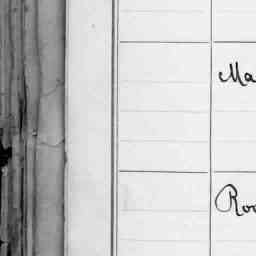 Ma
Roo